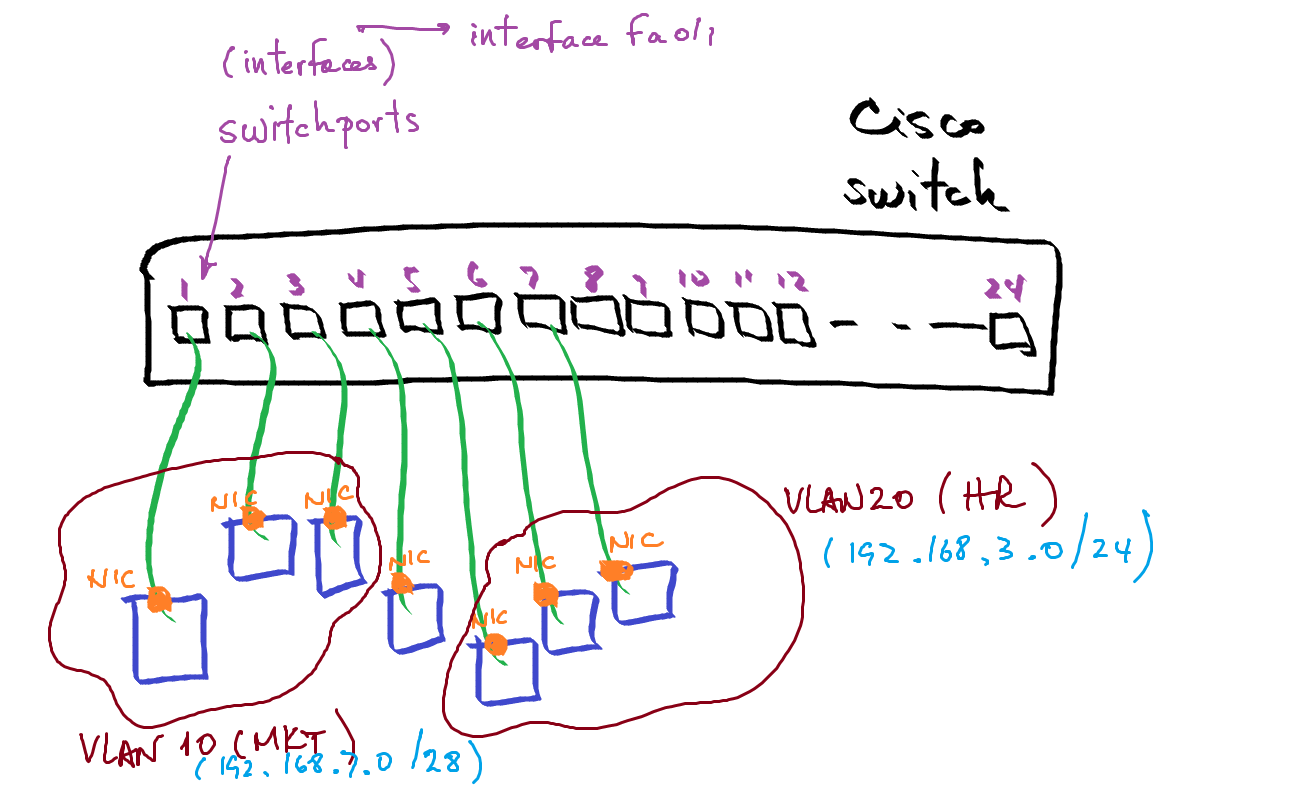 interface fa0/1
(interfaces)
switchports
Cisco
switch
1 2 3 4 5 6 7 8 9 10 11 12 24
NIC
NIC
NIC
NIC
NIC
NIC
NIC
VLAN20 (HR)
(192.168.3.0/24)
VLAN 10 (MKT)
(192.168.7.0/28)